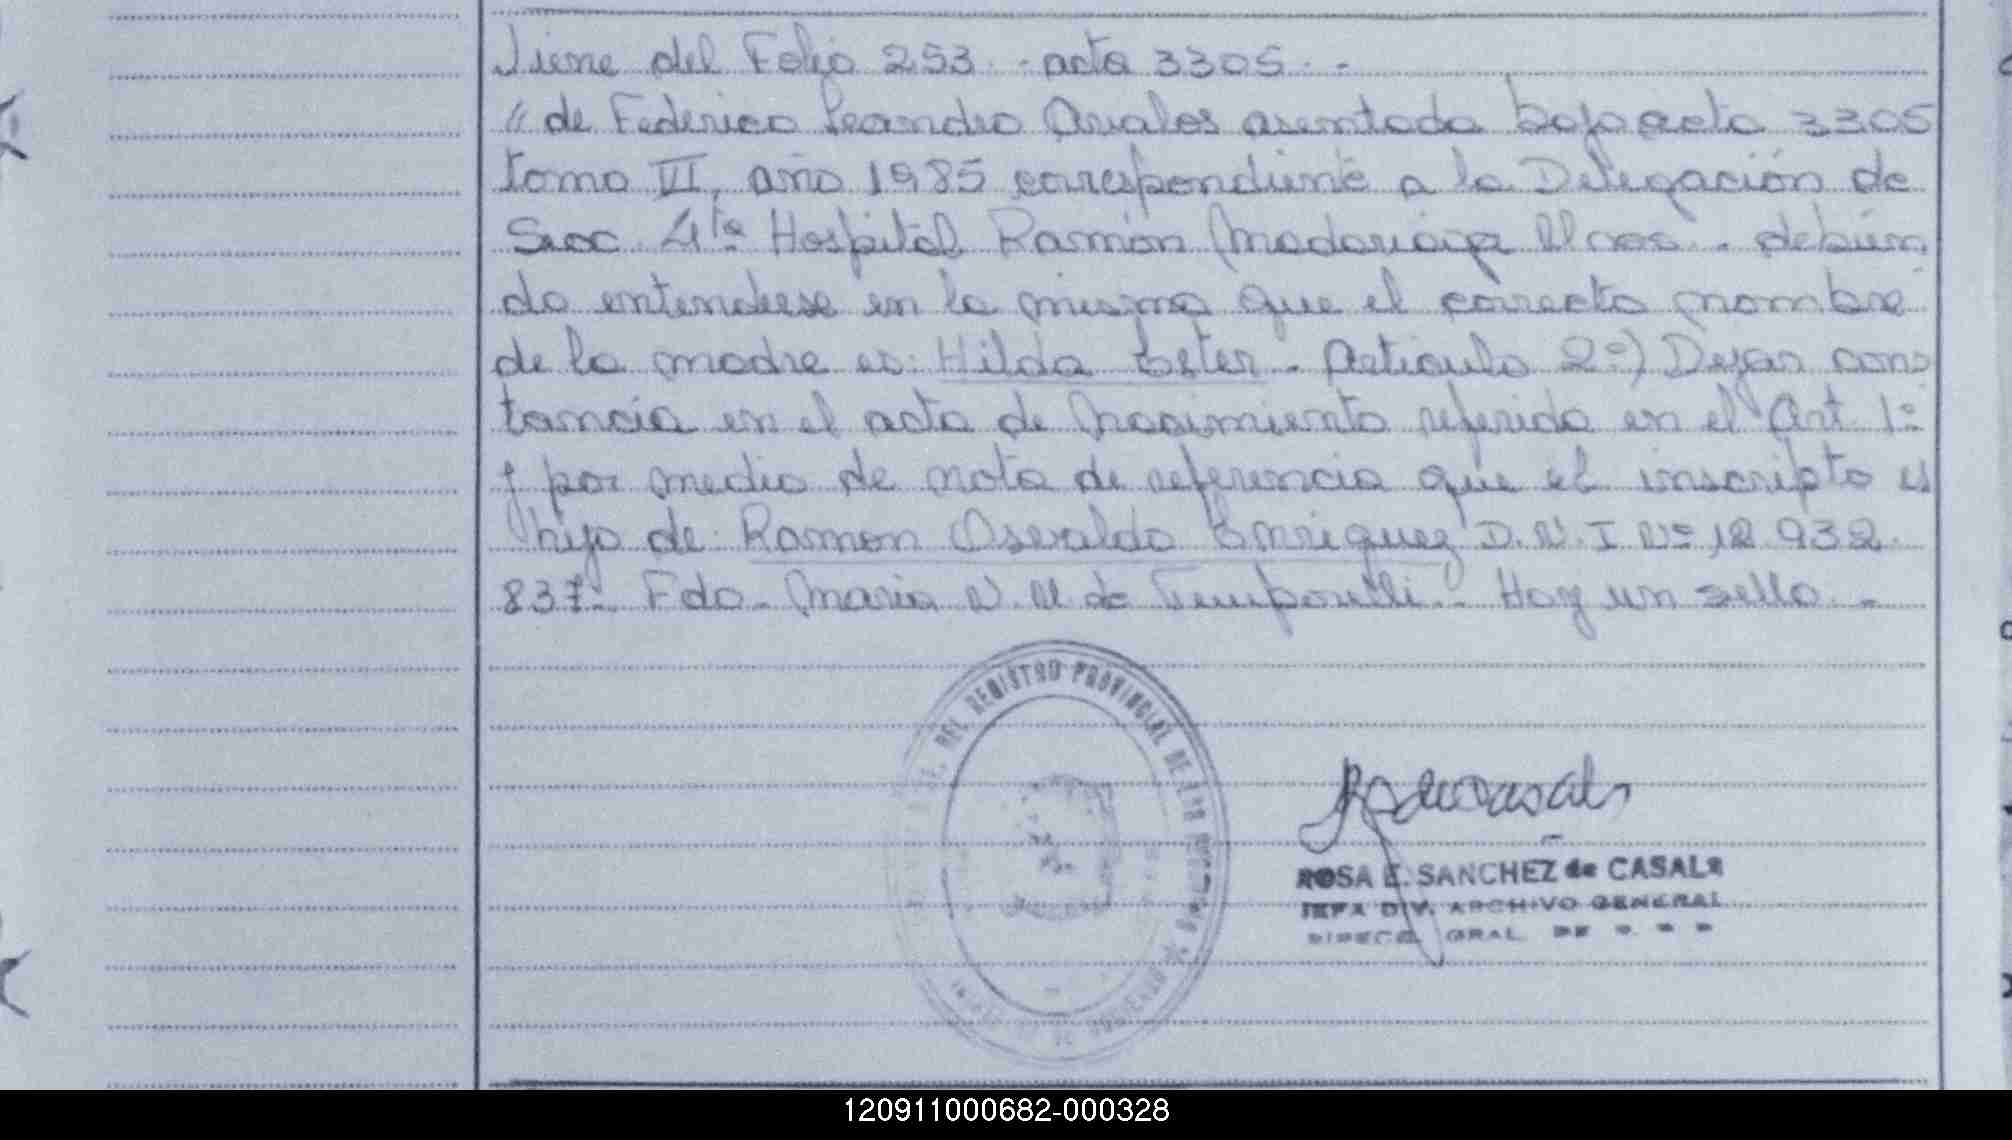 Viene del Folio 253. - acta 3305. -
" de Federico Leandro Avalos asentada bajo acta 3305
tomo VI, año 1985 correspondiente a la Delegación de
Secc. 4ta Hospital Ramón Madariaga Pdas. - debien
do entenderse en la misma que el correcto nombre
de la madre es: Hilda Ester. - Articulo 2º) Dejar cons
tancia en el acta de Nacimiento referida en el Art. 1º
y por medio de nota de referencia que el inscripto es
hijo de: Ramon Osvaldo Enriquez D.N.I Nº 12.932.
837. Fdo. Maria N. M de Temporelli. - Hay un sello. -
DEL REGISTRO PROVINCIAL DE LAS PERSONAS
ROSA E. SANCHEZ de CASALS
JEFA DIV. ARCHIVO GENERAL
DIRECC. GRAL. DE
120911000682-000328